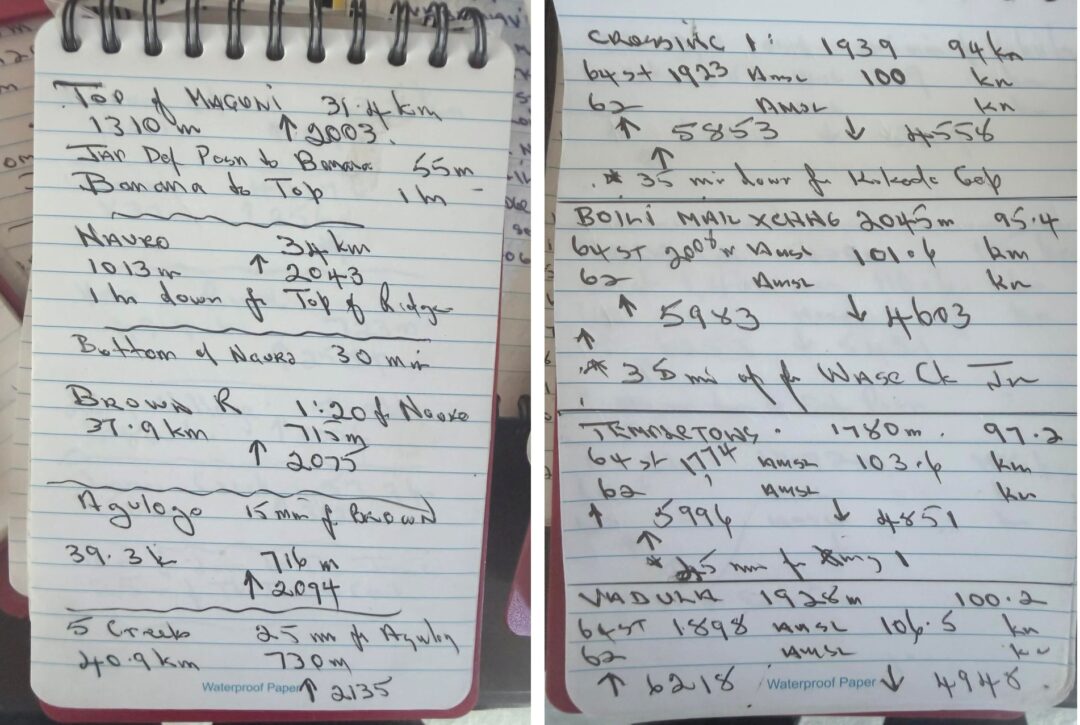 Top of MAGULI 31.4 km
1310 m ↑ 2003
JAP Def Posn to Banana 55m
Banana to Top 1 h
NAURO 34 km
1013 m ↑ 2043
1 hr down fr Top of Ridge
Bottom of Nauro 30 min
BROWN R 1:20 fr Nauro
37.9 km 715m
↑ 2075
Agulogo 15 min fr BROWN
39.3 k 716 m
↑ 2094
5 Creeks 25 min fr Agulog
40.9 km 730 m
Waterproof Paper ↑ 2135
CROSSING 1: 1939 94 km
64 st 1923 AMSL 100 km
62 AMSL km
↑ 5853 ↓ 4558
↑
* 35 min down fr Kokoda Gap
BOILI MAIL XCHNG 2045m 95.4
64 ST 2008 m AMSL 101.6 km
62 AMSL km
↑ 5983 ↓ 4603
↑
* 35 mi up fr WASE Ck Jn
TEMPLETONS 1780 m. 97.2
64 st 1774 AMSL 103.6 km
62 AMSL km
↑ 5996 ↓ 4851
↑
* 25 min fr 1
VADULA 1928 m 100.2
64 ST 1898 AMSL 106.5 km
62 AMSL km
↑ 6218 Waterproof Paper ↓ 4948